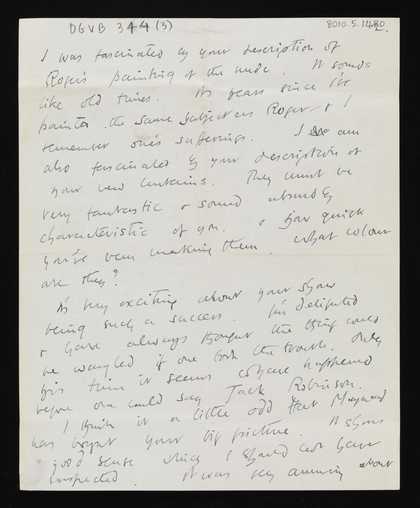 DGVB 344 (5)
8010.5.1480
I was fascinated by your description of
Roger's painting of the nude. It sounds
like old times. It's years since I've
painted the same subject as Roger & I
remember one's sufferings. I am
also fascinated by your description of
your new curtains. They must be
very fantastic & sound absurdly
characteristic of you. & how quick
you've been making them. What colour
are they?
It's very exciting about your show
being such a success. I'm delighted
& have always thought the thing could
be wangled if one took the trouble. Only
this time it seems to have happened
before one could say Jack Robinson.
I think it a little odd that Maynard
has bought your big picture. It shows
good sense which I should not have
suspected. It was very amusing about